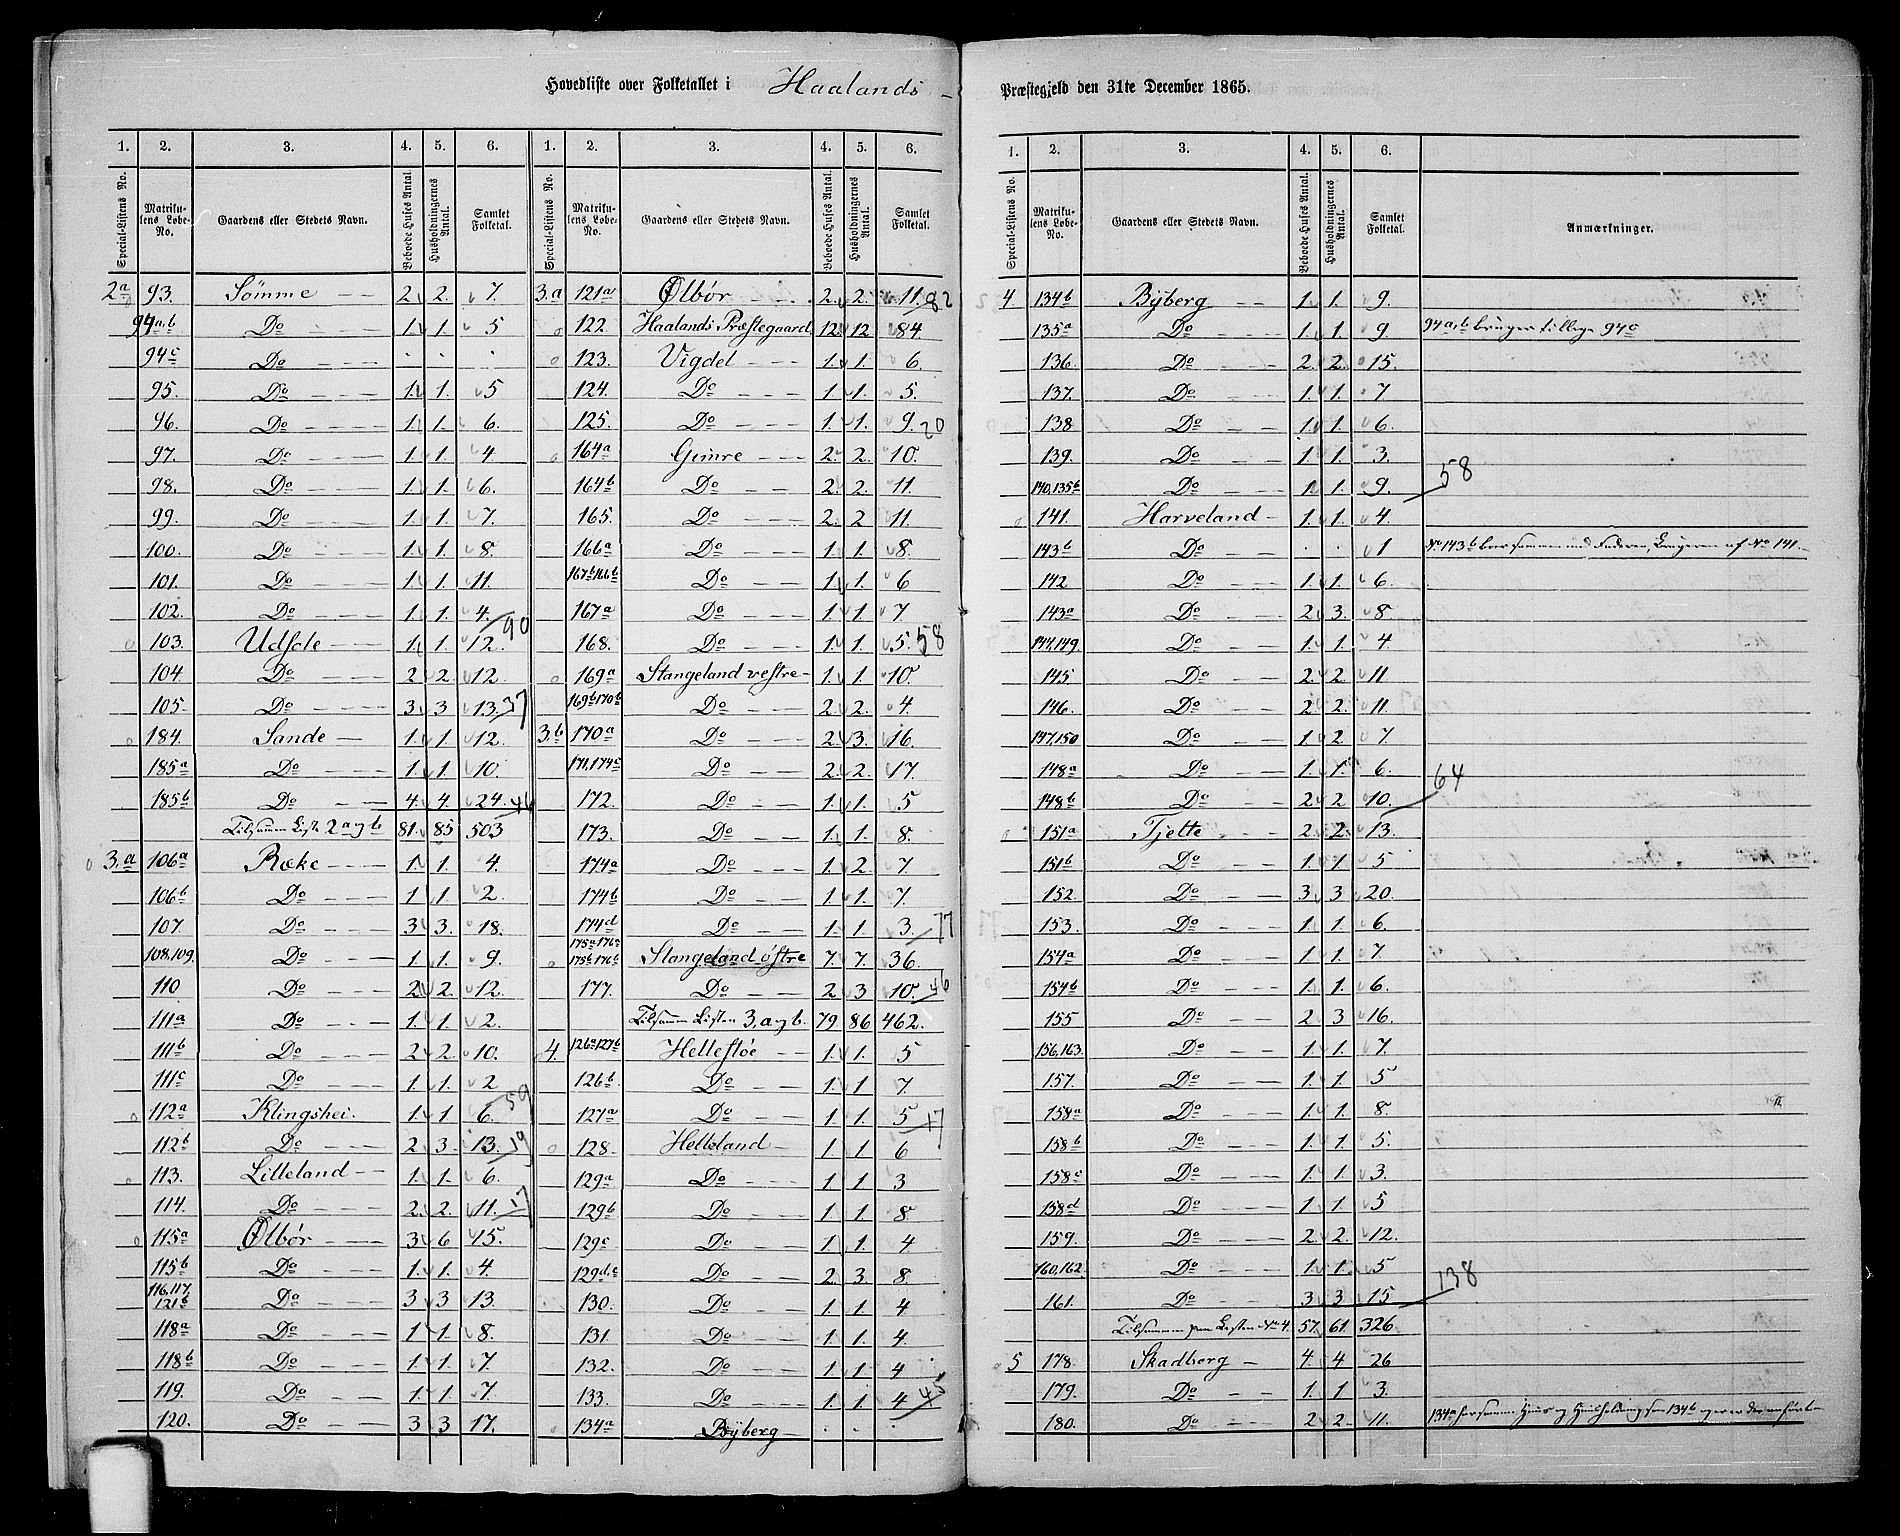 Hovedliste over Folketallet i Haalands-
Præstegjeld den 31te December 1865.
1. 2. 3. 4. 5. 6. 1. 2. 3. 4. 5. 6.
Special-Listens No. Matriku-lens Løbe-No. Gaardens eller Stedets Navn. Beboede Huses Antal. Husholdningernes Antal. Samlet Folketal. Special-Listens No. Matriku-lens Løbe-No. Gaardens eller Stedets Navn. Beboede Huses Antal. Husholdningernes Antal. Samlet Folketal.
2a 93. Sömme 2. 2. 7.
94a,b Do 1. 1. 5
94c Do . . .
95. Do 1. 1. 5
96. Do 1. 1. 6.
97. Do 1. 1. 4
98. Do 1. 1. 6.
99. Do 1. 1. 7.
100. Do 1. 1. 8.
101. Do 1. 1. 11.
102. Do 1. 1. 4. 90
103. Udsole 1. 1. 12.
104. Do 2 2. 12.
105. Do 3. 3 13. 37
184. Sande 1. 1. 12.
185a Do 1. 1. 10.
185b Do 4. 4. 24. 46
Tilsammen Liste 2 a og b 81. 85 503
3.a 106a Ræke 1. 1. 4.
106b Do 1. 1 2.
107. Do 3. 3. 18.
108,109. Do 1. 1. 9.
110 Do 2. 2. 12.
111a Do 1. 1. 2.
111b Do 2. 2. 10.
111c Do 1. 1. 2 59
112a Klingshei. 1. 1 6.
112b Do 2. 3. 13. 19
113. Lilleland 1. 1. 6.
114. Do 2. 2. 11. 17
115a Ølbør 3. 6 15.
115b Do 1. 1. 4.
116,117. 121b Do 3 3 13.
118a Do 1. 1. 8.
118b Do 1. 1. 7.
119. Do 1. 1. 7.
120. Do 3 3 17.
3.a 121a Ølbør 2. 2. 11. 82
122. Haalands Præstegaard 12. 12 84.
123. Vigdel 1. 1. 6
124. Do 1. 1. 5.
125. Do 1. 1. 9. 20
164a Gimre 2. 2. 10.
164b Do 2. 2. 11.
165. Do 2. 2 11.
166a Do 1. 1 8.
167b166b Do 1. 1. 6
167a Do 1. 1 7
168. Do 1. 1. 5. 58
169a Stangeland vestre 1. 1. 10.
169b170b Do 2. 2. 4.
3.b 170a Do 2. 3. 16.
171,174c Do 2. 2. 17.
172. Do 1. 1. 5
173. Do 1. 1. 8.
174a Do 1. 2. 7
174b Do 1. 1. 7.
174d Do 1. 1 3. 77
175a176a 175b176b Stangeland østre 7. 7. 36.
177. Do 2 3 10. 46
Tilsammen Listen 3. a og b. 79. 86 462.
4. 126a127b Hellestøe 1. 1. 5
126b. Do 1. 1 7.
127a Do 1. 1. 5 17
128. Helleland 1. 1 6
129a Do 1 1. 3
129b Do 1 1. 8
129c Do 1 1. 4
129d,e Do 2 3. 8.
130. Do 1. 1. 4
131. Do 1. 1. 4.
132. Do 1. 1. 4
133. Do 1. 1. 4 45
134a Byberg . . .
1. 2. 3. 4. 5. 6.
Special-Listens No. Matriku-lens Løbe-No. Gaardens eller Stedets Navn. Beboede Huses Antal. Husholdningernes Antal. Samlet Folketal. Anmærkninger.
4 134b Byberg 1. 1. 9.
135a Do 1. 1. 9. 94a,b bruger tillige 94c
136. Do 2. 2. 15.
137. Do 1. 1. 7
138 Do 1. 1. 6.
139. Do 1. 1. 3.
140,135b Do 1. 1. 9. 58
141. Harveland 1. 1. 4.
143b Do . . 1 No 143b boer sammen med Faderen, Brugeren af No 141.
142 Do 1. 1. 6.
143a Do 2. 3. 8.
144,149. Do 1. 1. 4
145 Do 2. 2. 11
146. Do 2. 2. 11.
147,150 Do 1. 2. 7
148a Do 1. 1. 6.
148b Do 2. 2 10. 64
151a Tjelte 2. 2. 13.
151b Do 1. 1. 5
152. Do 3. 3 20.
153. Do 1. 1 6.
154a Do 1. 1. 7.
154b Do 1. 1. 6.
155 Do 2. 3 16.
156,163. Do 1. 1. 7.
157. Do 1. 1. 5
158a Do 1. 1. 8.
158b Do 1. 1. 5.
158c Do 1. 1. 3.
158d Do 1. 1. 5
159. Do 2. 2. 12.
160,162. Do 1. 1. 5
161. Do 3. 3. 15 138
Tilsammen paa Listen No 4. 57. 61. 326
5 178. Skadberg 4. 4 26
179. Do 1. 1 3.
180. Do 2. 2. 11. 134a har samme Huus og Huusholdning som 134b og er der anført